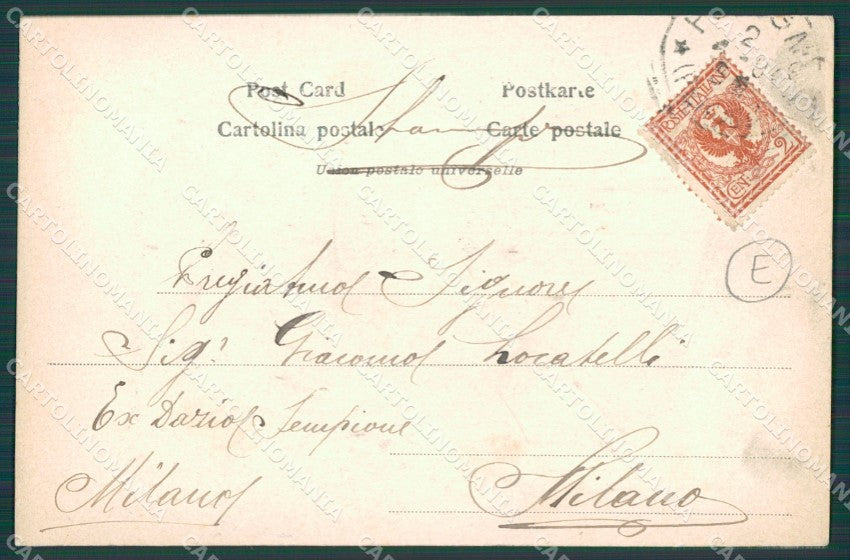 Post Card Postkarte
Stampe
Cartolina postale Carte postale
Union postale universelle
POSTE ITALIANE
CENT. 2
E
Pregiatmo Signore
Sigr Giacomo Locatelli
Ex Dazio Sempione
Milano Milano
CARTOLINOMANIA